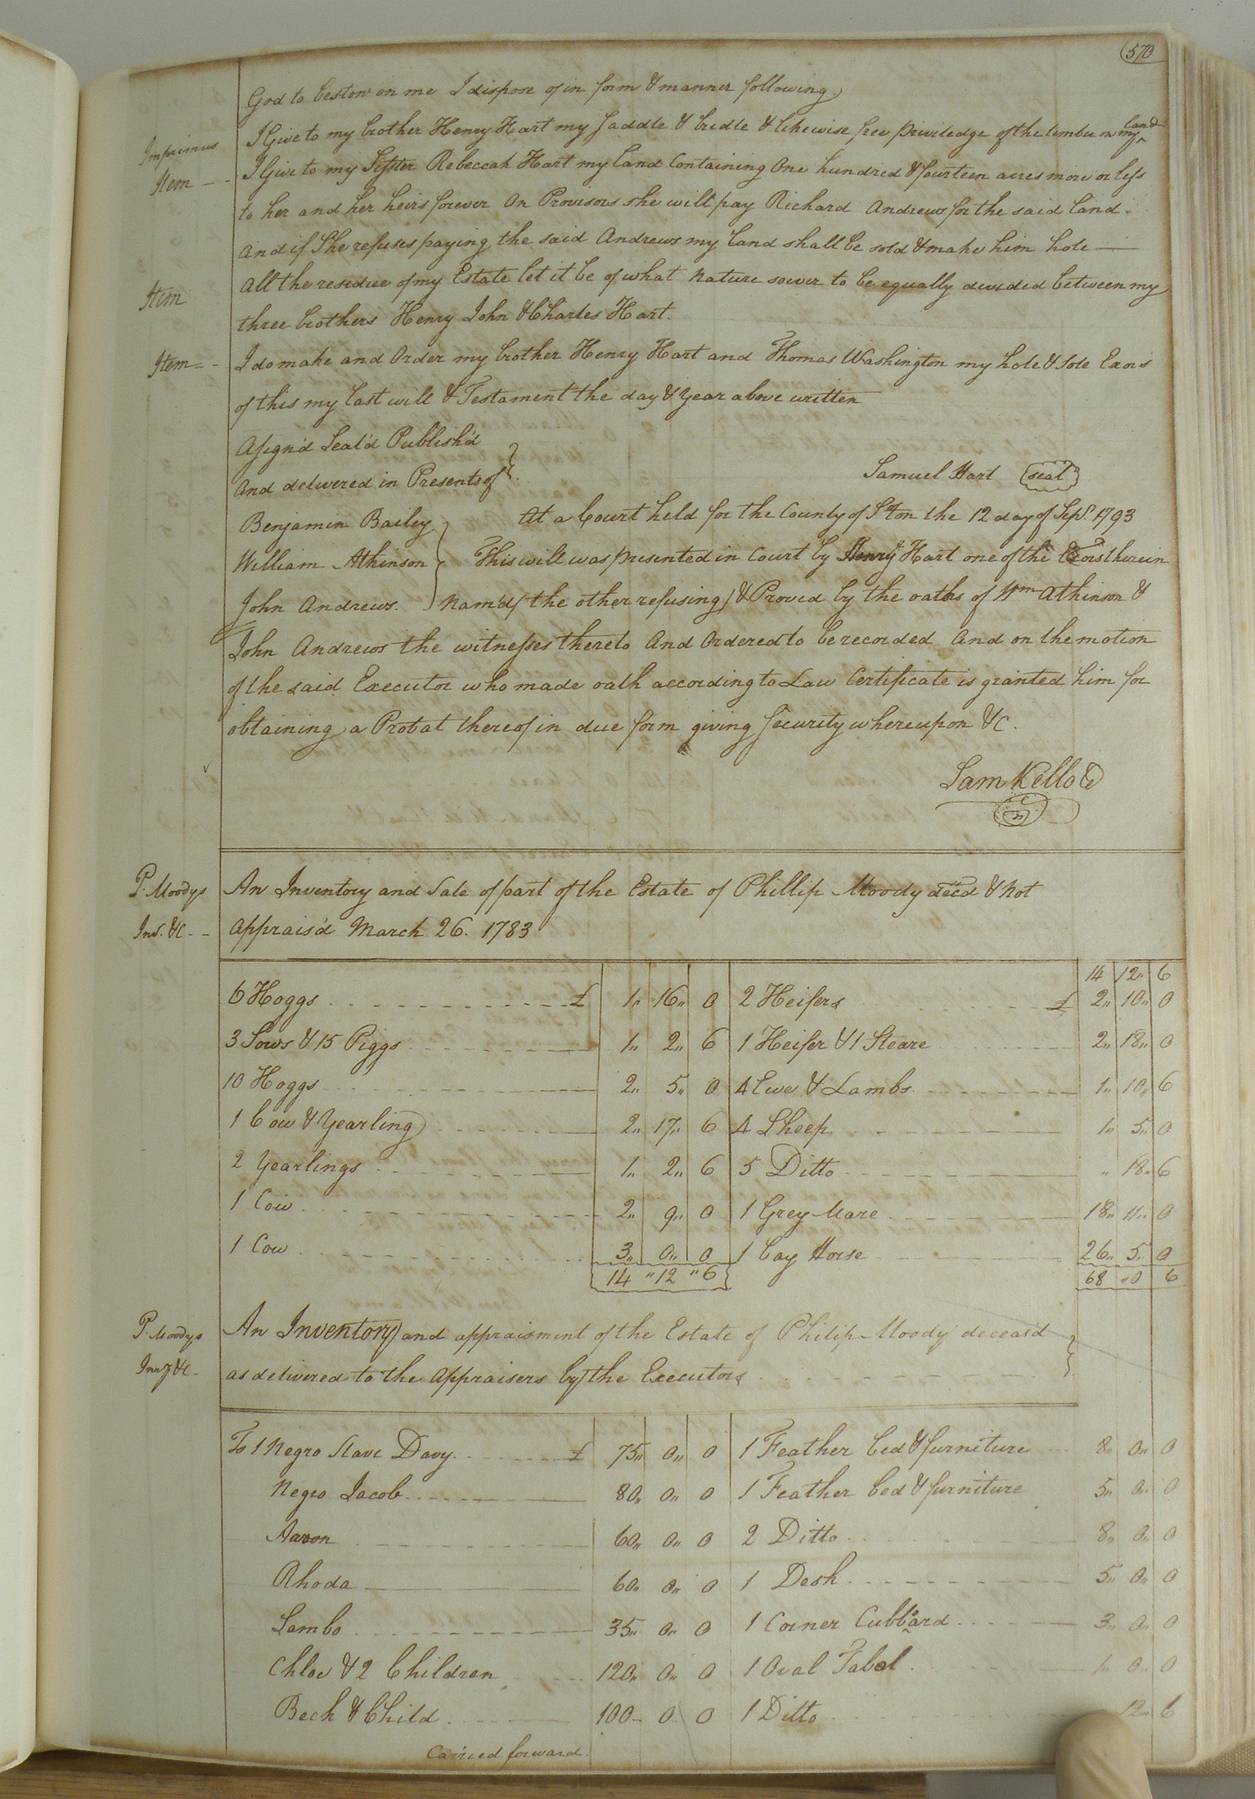 570
God to bestow on me I dispose of in form & manner following
Imprimus I Give to my brother Henry Hart my Saddle & bridle & likewise free priviledge of the timber on my land
Item - - I Give to my Sister Rebeccah Hart my land Containing One hundred & fourteen acres more or less
to her and her heirs forever On Provisors she will pay Richard Andrews for the said land.
And if She refuses paying the said Andrews my land shall be sold & make him hole
Item All the residue of my Estate let it be of what nature soever to be equally devided between my
three brothers Henry John & Charles Hart.
Item - - I do make and Order my brother Henry Hart and Thomas Washington my hole & Sole Exors
of this my last will & Testament the day & year above written
Asign'd Seal'd Publish'd
And delivered in Presents of
Samuel Hart (seal)
Benjamin Bailey
William Atkinson
John Andrews.
At a Court held for the County of S°ton the 12 day of Sept. 1793
This will was presented in Court by Henry Hart one of the Exors therein
Nam'd (the other refusing) & Proved by the oaths of Wm Atkinson &
John Andrews the witnesses thereto And Ordered to be recorded And on the motion
of the said Executor who made oath according to Law Certificate is granted him for
obtaining a Probat thereof in due form giving Security whereupon &C.
Sam Kello
P. Moodys An Inventory and Sale of part of the Estate of Phillip Moody dec'd & Not
Inv. &C - Apprais'd March 26. 1783
14 12" 6
6 Hoggs £ 1" 16" 0 2 Heifers £ 2" 10" 0
3 Sows & 15 Piggs 1" 2" 6 1 Heifer & 1 Steare 2" 18" 0
10 Hoggs 2" 5" 0 4 Ewe & Lambs 1" 10" 6
1 Cow & Yearling 2" 17" 6 4 Sheep 1" 5" 0
2 Yearlings 1" 2" 6 5 Ditto " 18" 6
1 Cow 2" 9" 0 1 Grey Mare 18" 11" 0
1 Cow 3" 0" 0 1 bay Horse 26" 5" 0
14 " 12 " 6 68 " 0 6
P Moodys An Inventory and appraisment of the Estate of Philip Moody deceas'd
Invy &C - as delivered to the Appraisers by the Executors
To 1 Negro Slave Davy £ 75" 0" 0 1 Feather bed & furniture 8" 0" 0
Negro Jacob 80" 0" 0 1 Feather bed & furniture 5" 0" 0
Aaron 60" 0" 0 2 Ditto 8" 0" 0
Rhoda 60" 0" 0 1 Desk 5" 0" 0
Sambo 35" 0" 0 1 Corner Cubbard 3" 0" 0
Chloe & 2 Children 120" 0" 0 1 Oval Tabel 1" 0" 0
Beck & Child 100 - 0 0 1 Ditto 12" 6
Carried forward